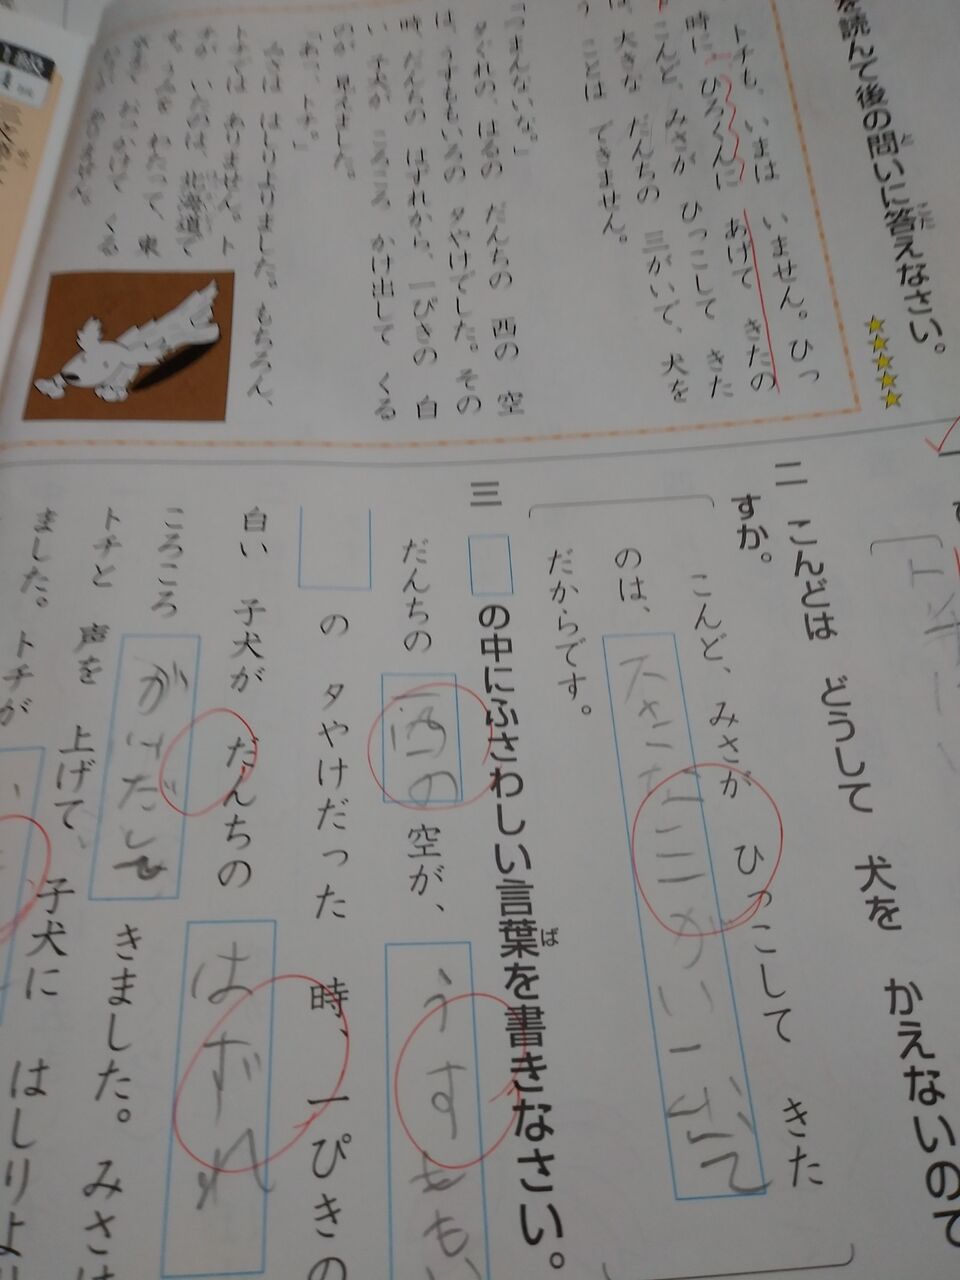 を読んで後の問いに答えなさい。
トチも、いまは いません。ひっ
時に ひろくんに あげて きたの
こんど、みさが ひっこして きた
大きな だんちの 三がいで、犬を
ことは できません。
「つまんないな。」
だんちの 西の 空
は、うすももいろの 夕やけでした。その
時、だんちの はずれから、一ぴきの 白
い 子犬が ころころ かけ出して くる
のが 見えました。
「あっ、トチ。」
みさは はしりよりました。もちろん、
トチでは ありません。ト
チが いたのは、北海道で
わたって、東
おっかけて くる
ありません。
二 こんどは どうして 犬を かえないので
すか。
こんど、みさが ひっこして きた
のは、大きな三がいだて
だからです。
三 の中にふさわしい言葉を書きなさい。
だんちの 西の 空が、うすももい
の 夕やけだった 時、一ぴきの
白い 子犬が だんちの はずれ
ころころ がけだして きました。みさは
トチと 声を 上げて、子犬に はしりより
ました。トチが